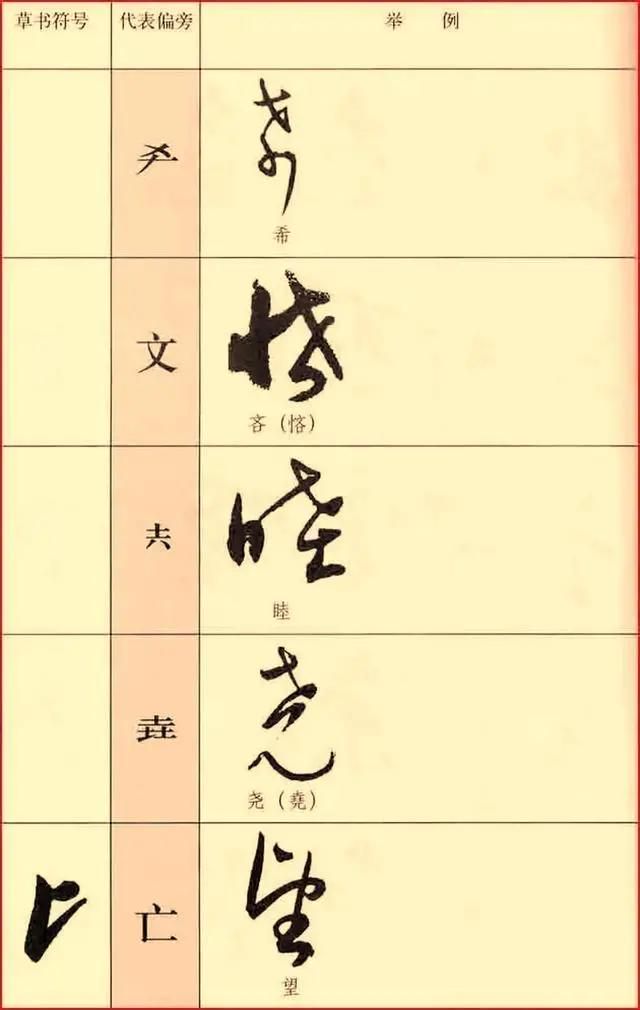 草书符号 代表偏旁 举例
希
文
吝（悋）
睦
尧（堯）
亡
望